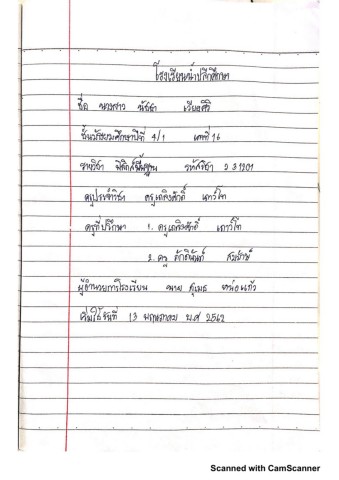 โรงเรียนน้ำปลีกศึกษา
ชื่อ นางสาว นัชชา เวียงศิริ
ชั้นมัธยมศึกษาปีที่ 4/1 เลขที่ 16
รายวิชา ฟิสิกส์พื้นฐาน รหัสวิชา ว 31201
ครูประจำวิชา ครูเถลิงศักดิ์ เถาว์โท
ครูที่ปรึกษา 1. ครูเถลิงศักดิ์ เถาว์โท
2. ครู ศักดินันท์
ผู้อำนวยการโรงเรียน นาย สุเมธ หน่อแก้ว
เริ่มใช้วันที่ 13 พฤษภาคม พ.ศ 2562
Scanned with CamScanner